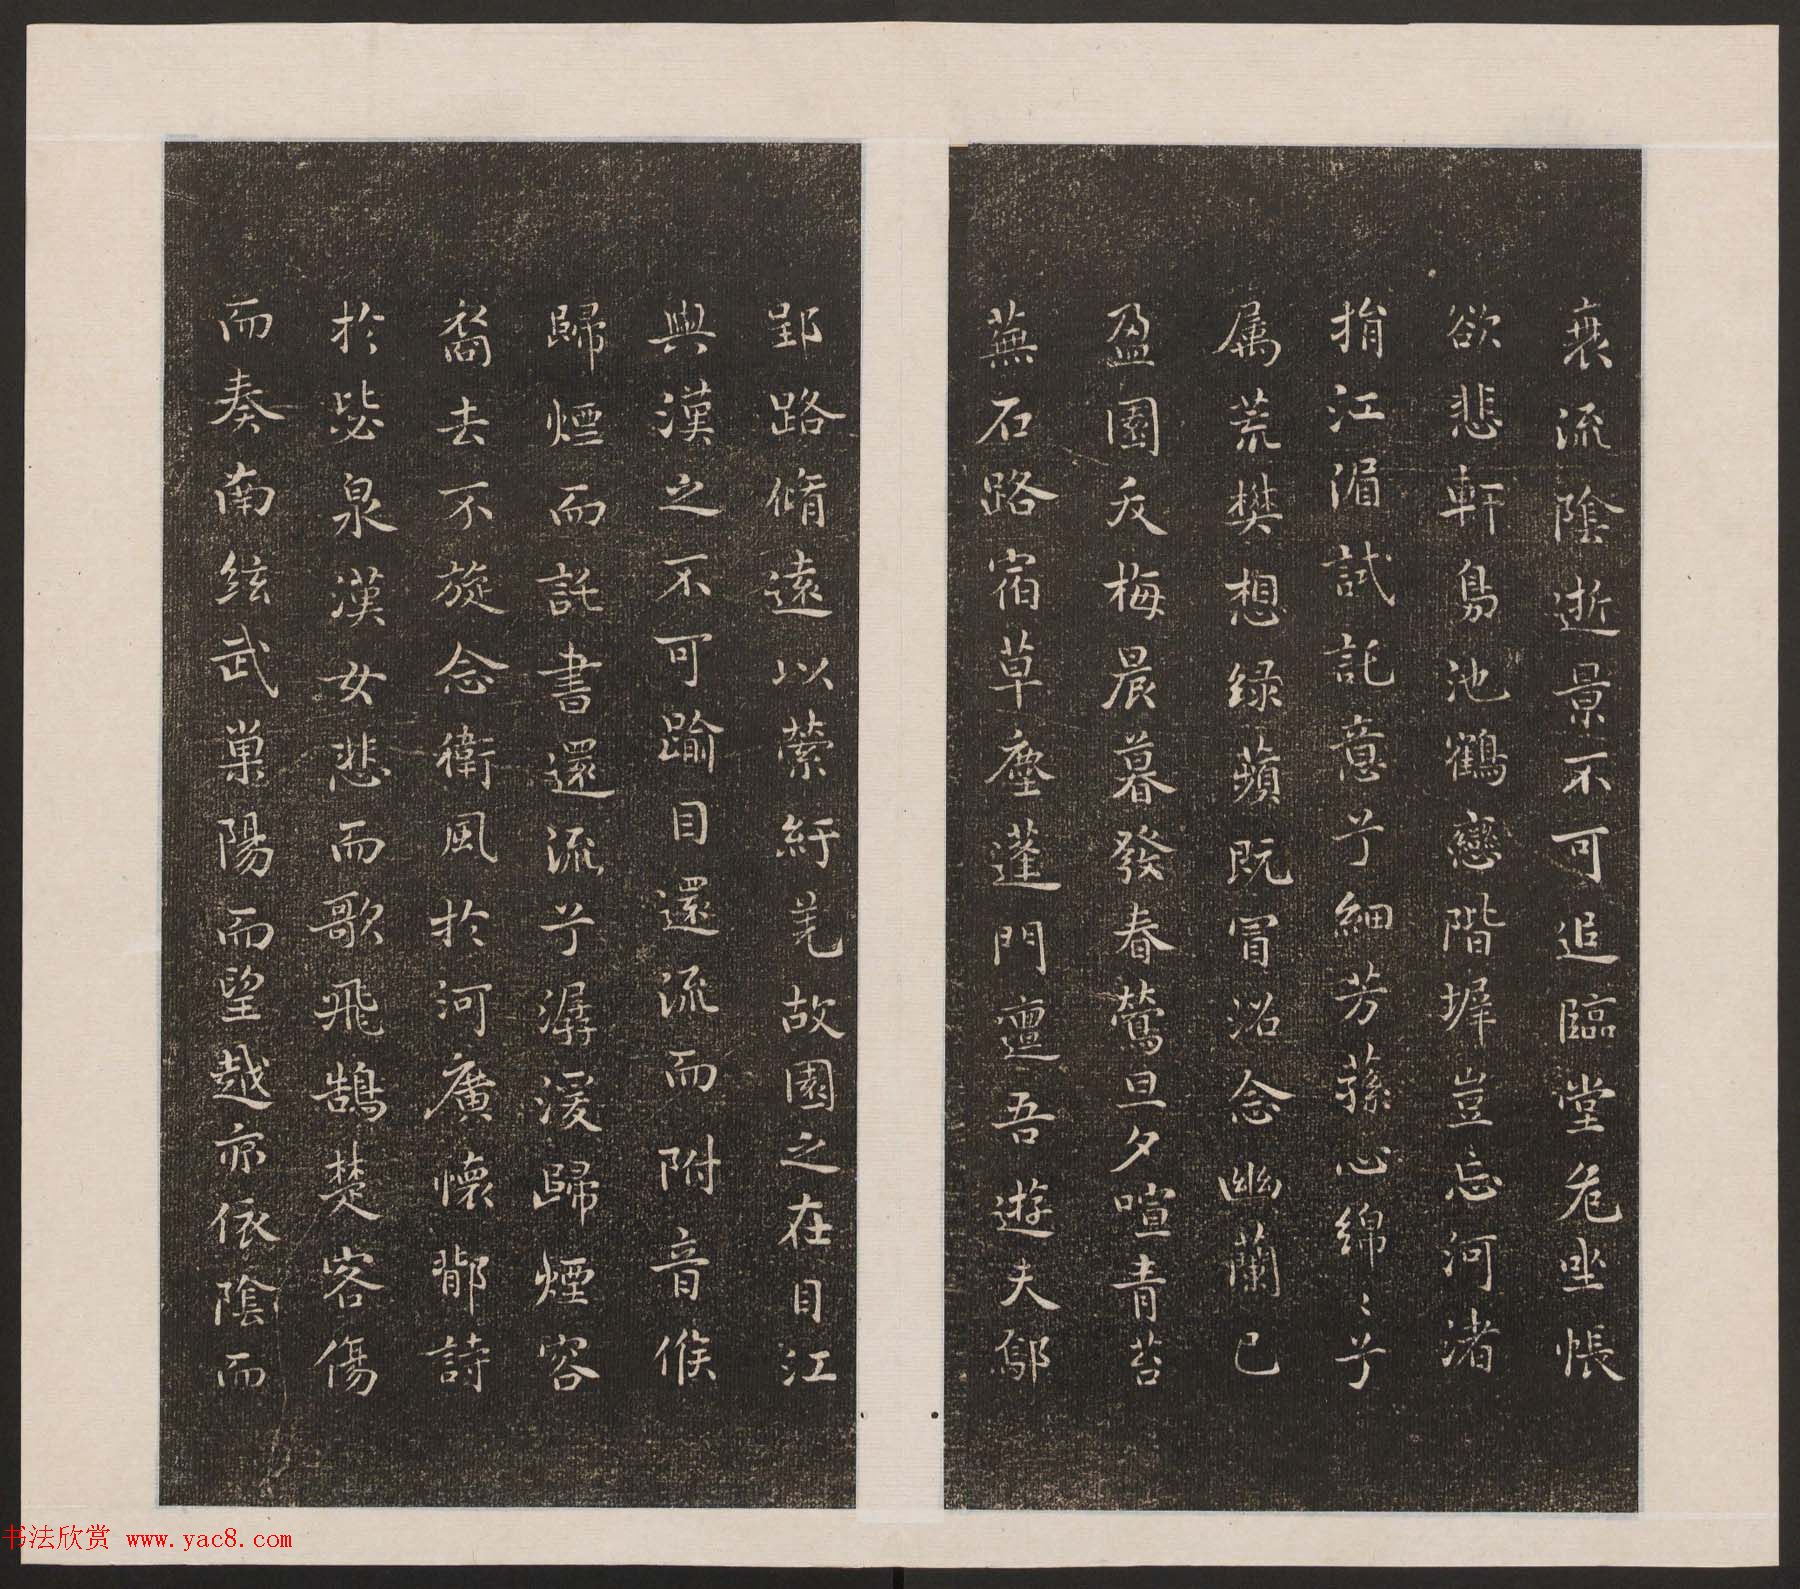 衰流陰逝景不可追臨堂危坐悵
欲悲軒鳥池鶴戀階墀豈忘河渚
捐江湄試託意兮細芳蓀心綿〻兮
属荒樊想绿蘋既冒沼念幽蘭已
盈園夭梅晨暮發春鶯旦夕喧青苔
蕪石路宿草塵蓬門邅吾遊夫鄢
郢路脩遠以縈紆羌故園之在目江
與漢之不可踰目還流而附音候
歸煙而託書還流兮潺湲歸煙容
裔去不旋念衛風於河廣懷邶詩
於毖泉漢女悲而歌飛鵠楚客傷
而奏南絃武巢陽而望越亦依陰而
书法欣赏 www.yac8.com